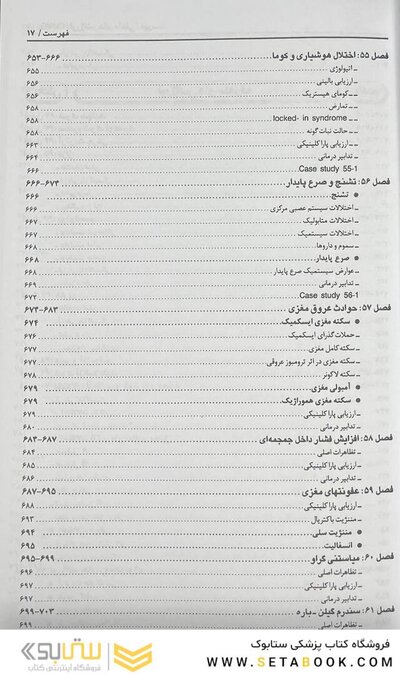 فهرست / ۱۷
فصل ۵۵: اختلال هوشیاری و کوما ۶۵۳-۶۶۶
ـ اتیولوژی ۶۵۵
ـ ارزیابی بالینی ۶۵۶
ــ کومای هیستریک ۶۵۶
ــ تمارض ۶۵۸
ــ locked- in syndrome ۶۵۸
ــ حالت نبات گونه ۶۵۸
ــ ارزیابی پاراکلینیکی ۶۶۳
ــ تدابیر درمانی ۶۶۴
Case study 55-1 ۶۶۶
فصل ۵۶: تشنج و صرع پایدار ۶۶۶-۶۷۳
● تشنج ۶۶۶
ـ اختلالات سیستم عصبی مرکزی ۶۶۶
ـ اختلالات متابولیک ۶۶۷
ـ اختلالات سیستمیک ۶۶۷
ـ سموم و داروها ۶۶۸
● صرع پایدار ۶۶۸
ـ عوارض سیستمیک صرع پایدار ۶۶۸
ـ تدابیر درمانی ۶۶۹
Case study 56-1 ۶۷۲
فصل ۵۷: حوادث عروق مغزی ۶۷۳-۶۸۳
● سکته مغزی ایسکمیک ۶۷۴
ـ حملات گذرای ایسکمیک ۶۷۶
ـ سکته کامل مغزی ۶۷۷
ـ سکته مغزی در اثر ترومبوز عروقی ۶۷۷
ـ سکته لاکونر ۶۷۸
● آمبولی مغزی ۶۷۹
● سکته مغزی هموراژیک ۶۷۹
ـ ارزیابی پارا کلینیکی ۶۷۹
ـ تدابیر درمانی ۶۸۰
فصل ۵۸: افزایش فشار داخل جمجمه‌ای ۶۸۳-۶۸۷
ـ تظاهرات اصلی ۶۸۴
ـ ارزیابی پاراکلینیکی ۶۸۵
ـ تدابیر درمانی ۶۸۶
فصل ۵۹: عفونتهای مغزی ۶۸۷-۶۹۵
ـ ارزیابی پاراکلینیکی ۶۸۸
ـ مننژیت باکتریال ۶۹۳
● مننژیت سلی ۶۹۴
● انسفالیت ۶۹۵
فصل ۶۰: میاستنی گراو ۶۹۵-۶۹۹
ـ تظاهرات اصلی ۶۹۶
ـ ارزیابی پاراکلینیکی ۶۹۷
ـ تدابیر درمانی ۶۹۷
فصل ۶۱: سندرم گیلن ـ باره ۶۹۹-۷۰۳
ـ تظاهرات اصلی ۶۹۹
فروشگاه کتاب پزشکی ستابوک
WWW.SETABOOK.COM
ستابوک
فروشگاه اینترنتی کتاب